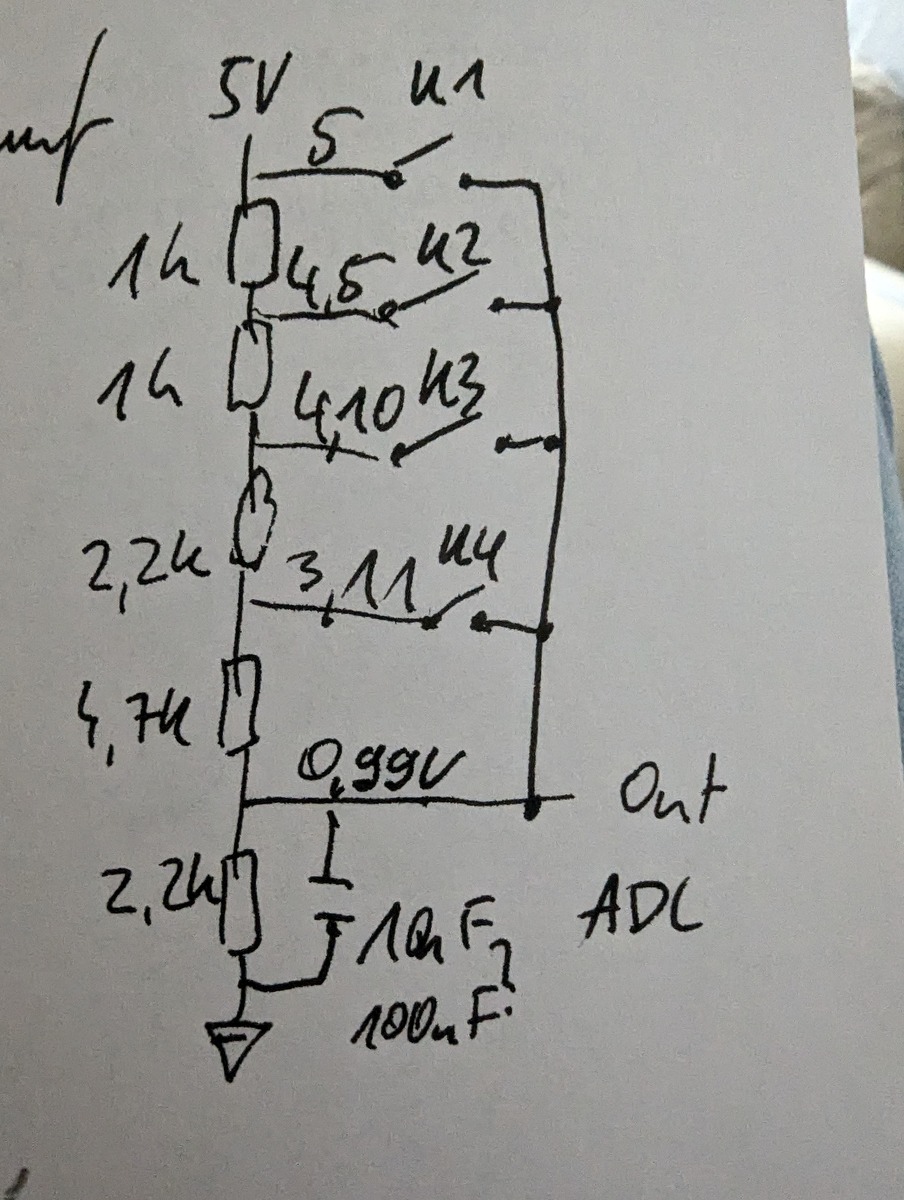 5V
K1
5
1k
4,5
K2
1k
4,10
K3
2,2k
3,11
K4
4,7k
0,99V
Out
2,2k
10nF?
ADC
100nF?